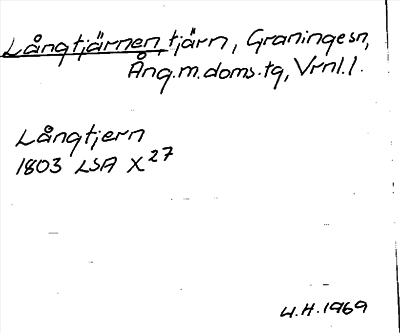 Långtjärnen, tjärn, Graningesn,
Ång.m.doms.tg, Vrnl.l.
Långtjern
1803 LSA X27
U.H.1969